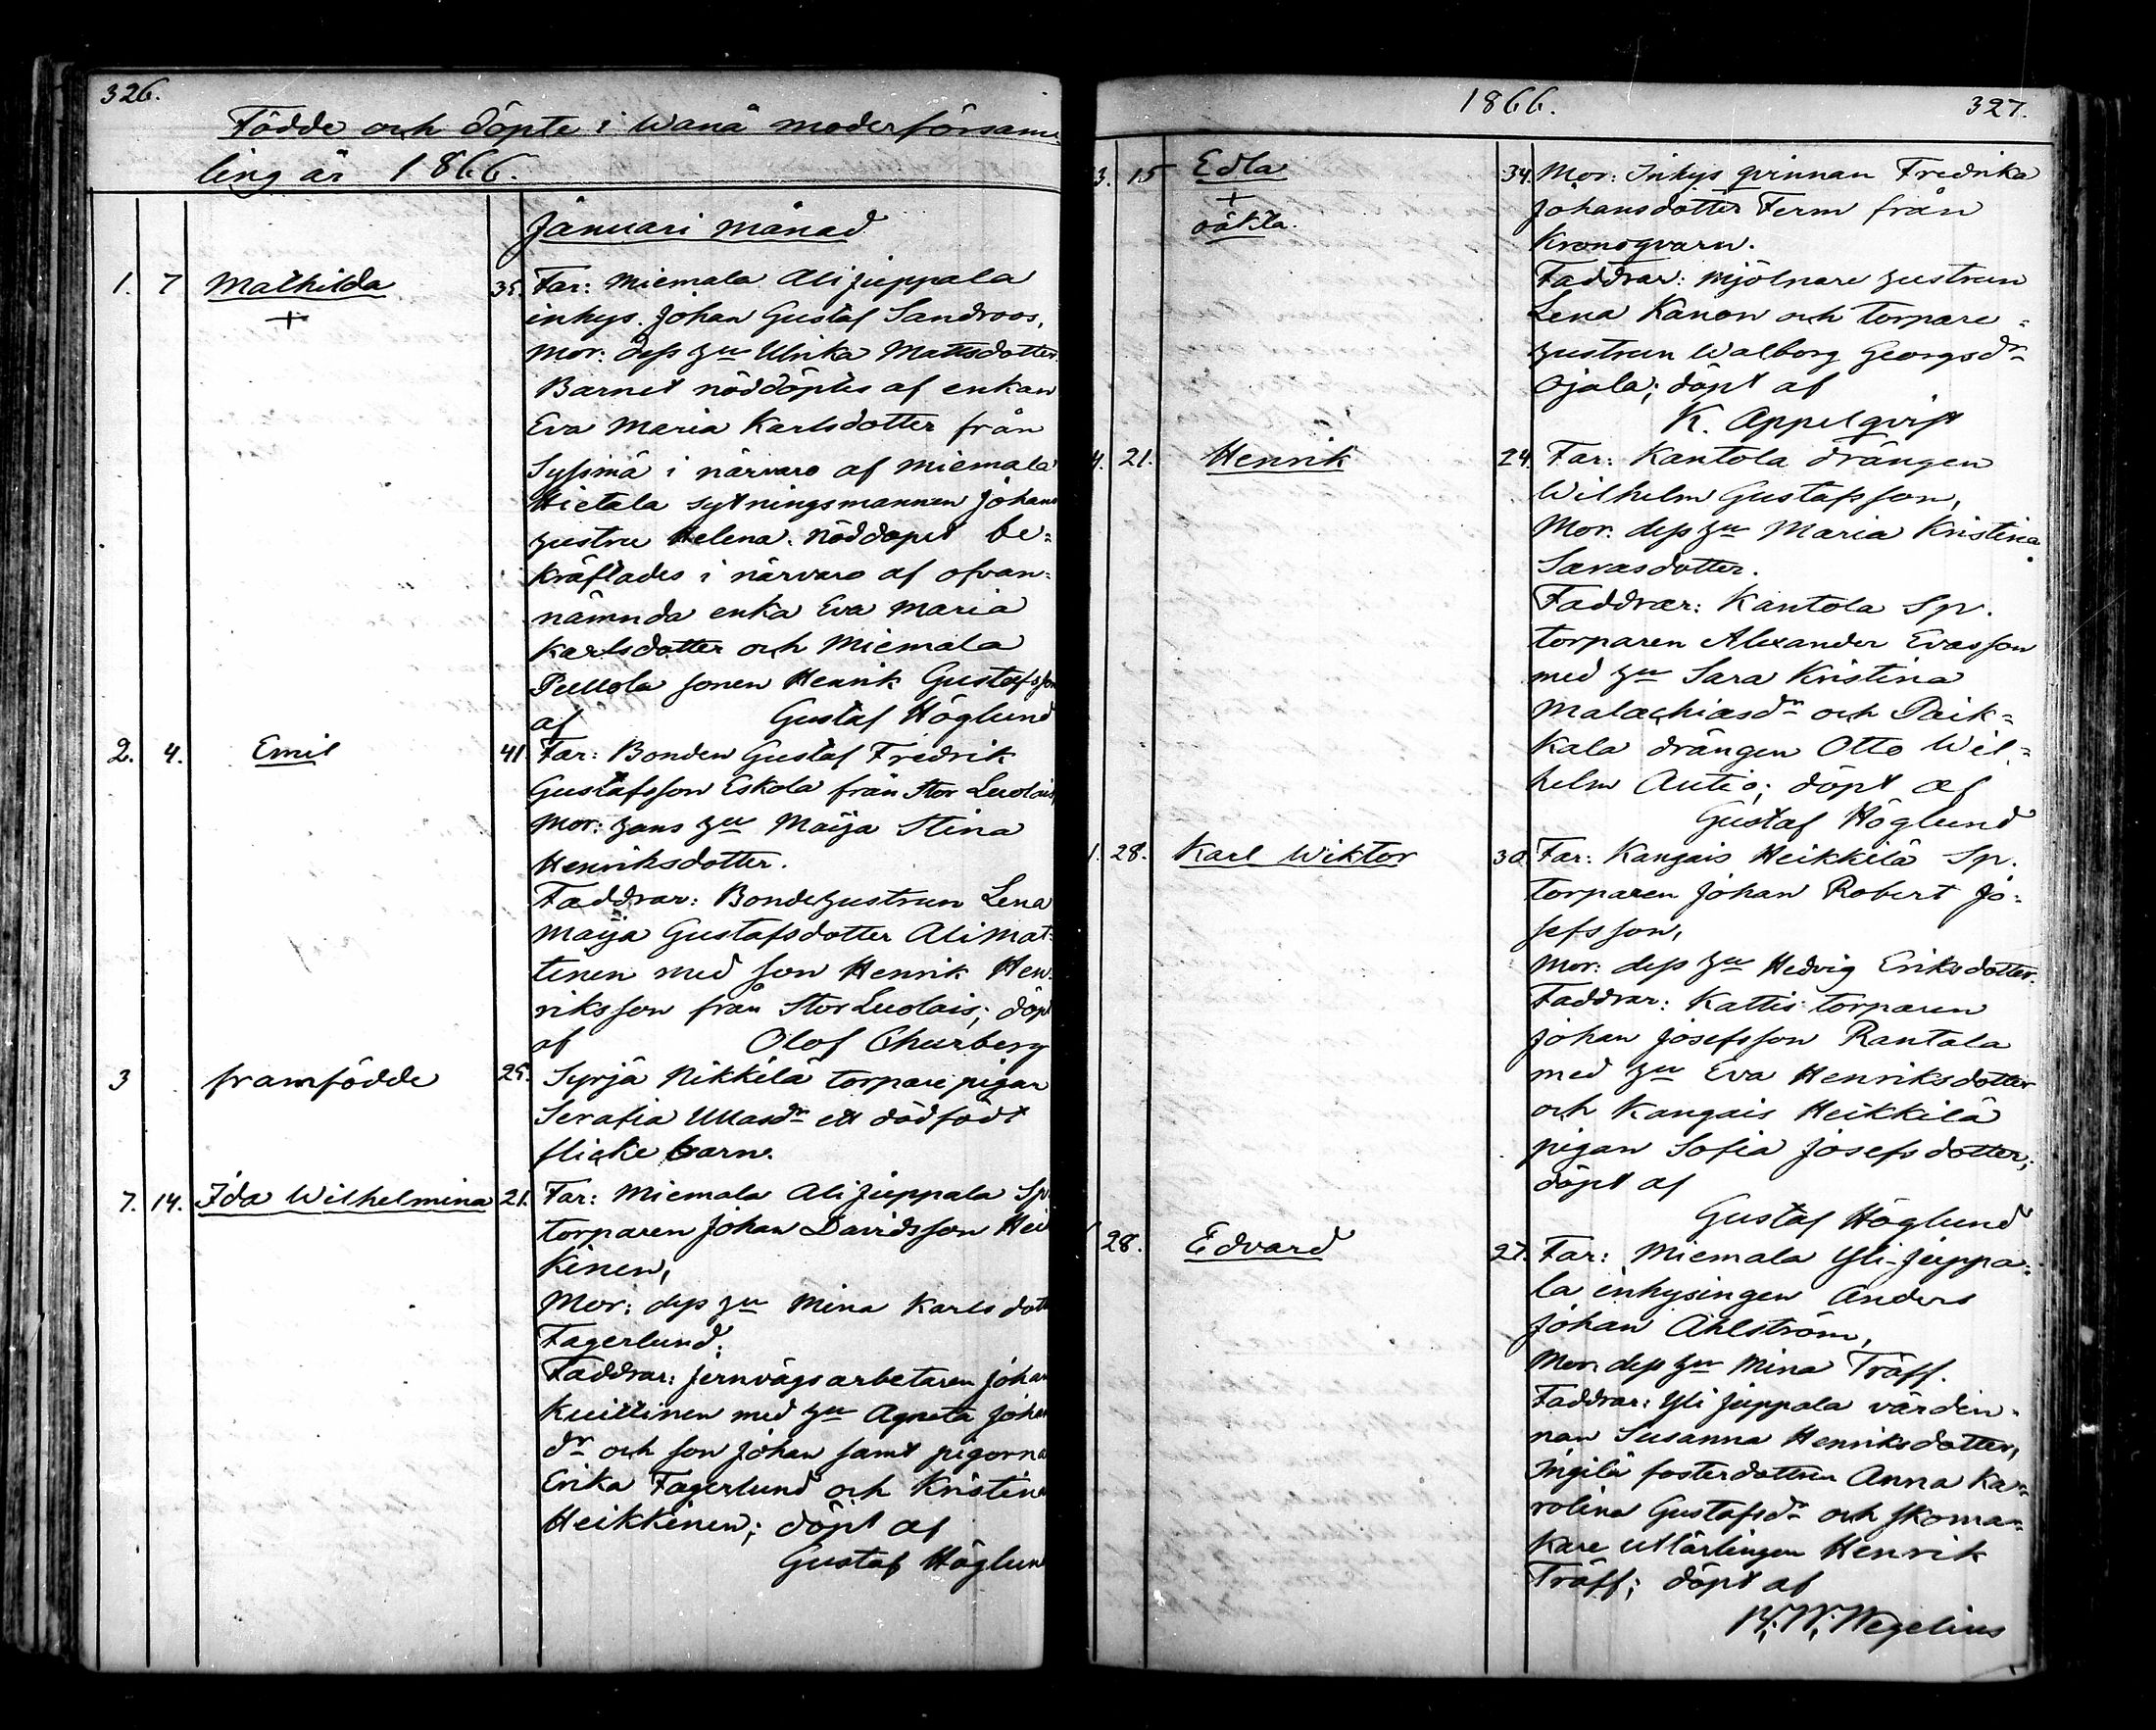 326.
Födde och döpte i Wanå moderförsam
ling år 1866.
Januari månad
1. 7 Mathilda 35. Far: Miemala Alijuppala
+
inhys. Johan Gustaf Sandroos,
Mor: dess hu Ulrika Mattsdotter.
Barnet nöddöptes af enkan
Eva Maria Karlsdotter från
i närvaro af Miemala
Hietala sytningsmannen Johans
hustru Helena. Nöddopet be=
kräftades i närvaro af ofvan=
nämnda enka Eva Maria
Karlsdotter och Miemala
Pullola sonen Henrik Gustafsson
af Gustaf Höglund
2. 4. Emil 41 Far: Bonden Gustaf Fredrik
Gustafsson Eskola från Stor Luolais,
Mor: hans hu Maija Stina
Henriksdotter.
Faddrar: Bondehustrun Lena
Maija Gustafsdotter Alimat=
tinen med son Henrik Hen=
riksson från Stor Luolais; döpt
af Olof Churberg
3 framfödde 25. Syrjä Nikkilä torpare pigan
Serafia Ullasdr ett dödfödt
flicke barn.
7. 14. Ida Wilhelmina 21. Far: Miemala Alijuppala Sp
torparen Johan Davidsson Hei
kinen,
Mor: dess hu Mina Karlsdott
Fagerlund.
Faddrar: jernvägsarbetaren Johan
Kuittinen med hu Agneta Johan
dr och son Johan samt pigorna
Erika Fagerlund och Kristina
Heikkinen; döpt af
Gustaf Höglun
1866. 327.
3. 15 Edla 34. Mor: Inhys qvinnan Fredrika
+
oäkta.
Johansdotter Ferm från
Kronoqvarn.
Faddrar: mjölnare hustrun
Lena Kanon och torpare=
hustrun Walborg Georgsdr
Ojala; döpt af
K. Appelqvist
4. 21. Henrik 24. Far: Kantola drängen
Wilhelm Gustafsson,
Mor: dess hu Maria Kristina
Sarasdotter.
Faddrar: Kantola Sp.
torparen Alexander Evasson
med hu Sara Kristina
Malachiasdr och Paik=
kala drängen Otto Wil=
helm Autio; döpt af
Gustaf Höglund
1. 28. Karl Wiktor 30. Far: Kangais Heikkilä Sp.
torparen Johan Robert Jo=
sefsson,
Mor: dess hu Hedvig Eriksdotter.
Faddrar: Kattis torparen
Johan Josefsson Rantala
med hu Eva Henriksdotter
och Kangais Heikkilä
pigan Sofia Josefsdotter;
döpt af
Gustaf Höglund
28. Edvard 27. Far: Miemala Yli-Juppa=
la inhysingen Anders
Johan Ahlström,
Mor: dess hu Mina Träff.
Faddrar: Yli Juppala värdin=
nan Susanna Henriksdotter,
Ingilä fosterdottren Anna Ka=
rolina Gustafsdr och skoma=
kare utlärlingen Henrik
Träff; döpt af
K. W. Wegelius